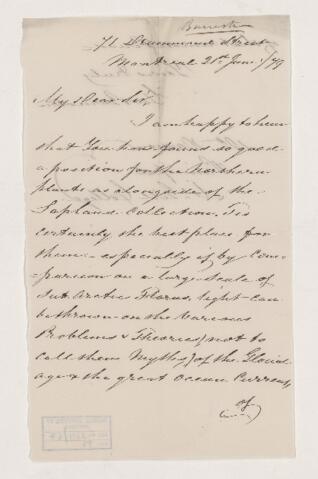 Burnston
71 Drummond Street
Montreal 21st Jan. /79
My Dear Sir,
I am happy to hear
that You have found so good
a position for the Northern
plants as alongside of the
Lapland Collection. Tis
certainly the best place for
them - especially if by Com-
-parison on a large scale of
Sub Arctic Floras, light can
be thrown on the various
Problems & Theories (not to
call them Myths) of the Glacial
age & the great Ocean Currents
of